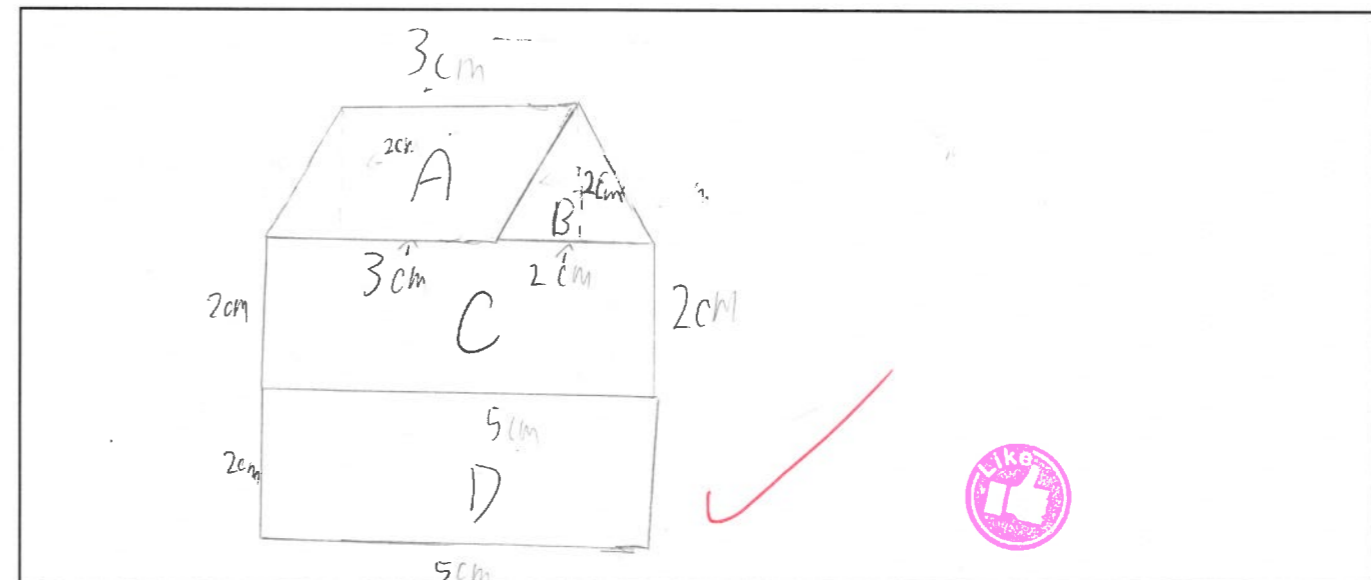 3cm
2cm
A
2cm
B
3cm
2cm
2cm
C
2cm
5cm
2cm
D
5cm
Like